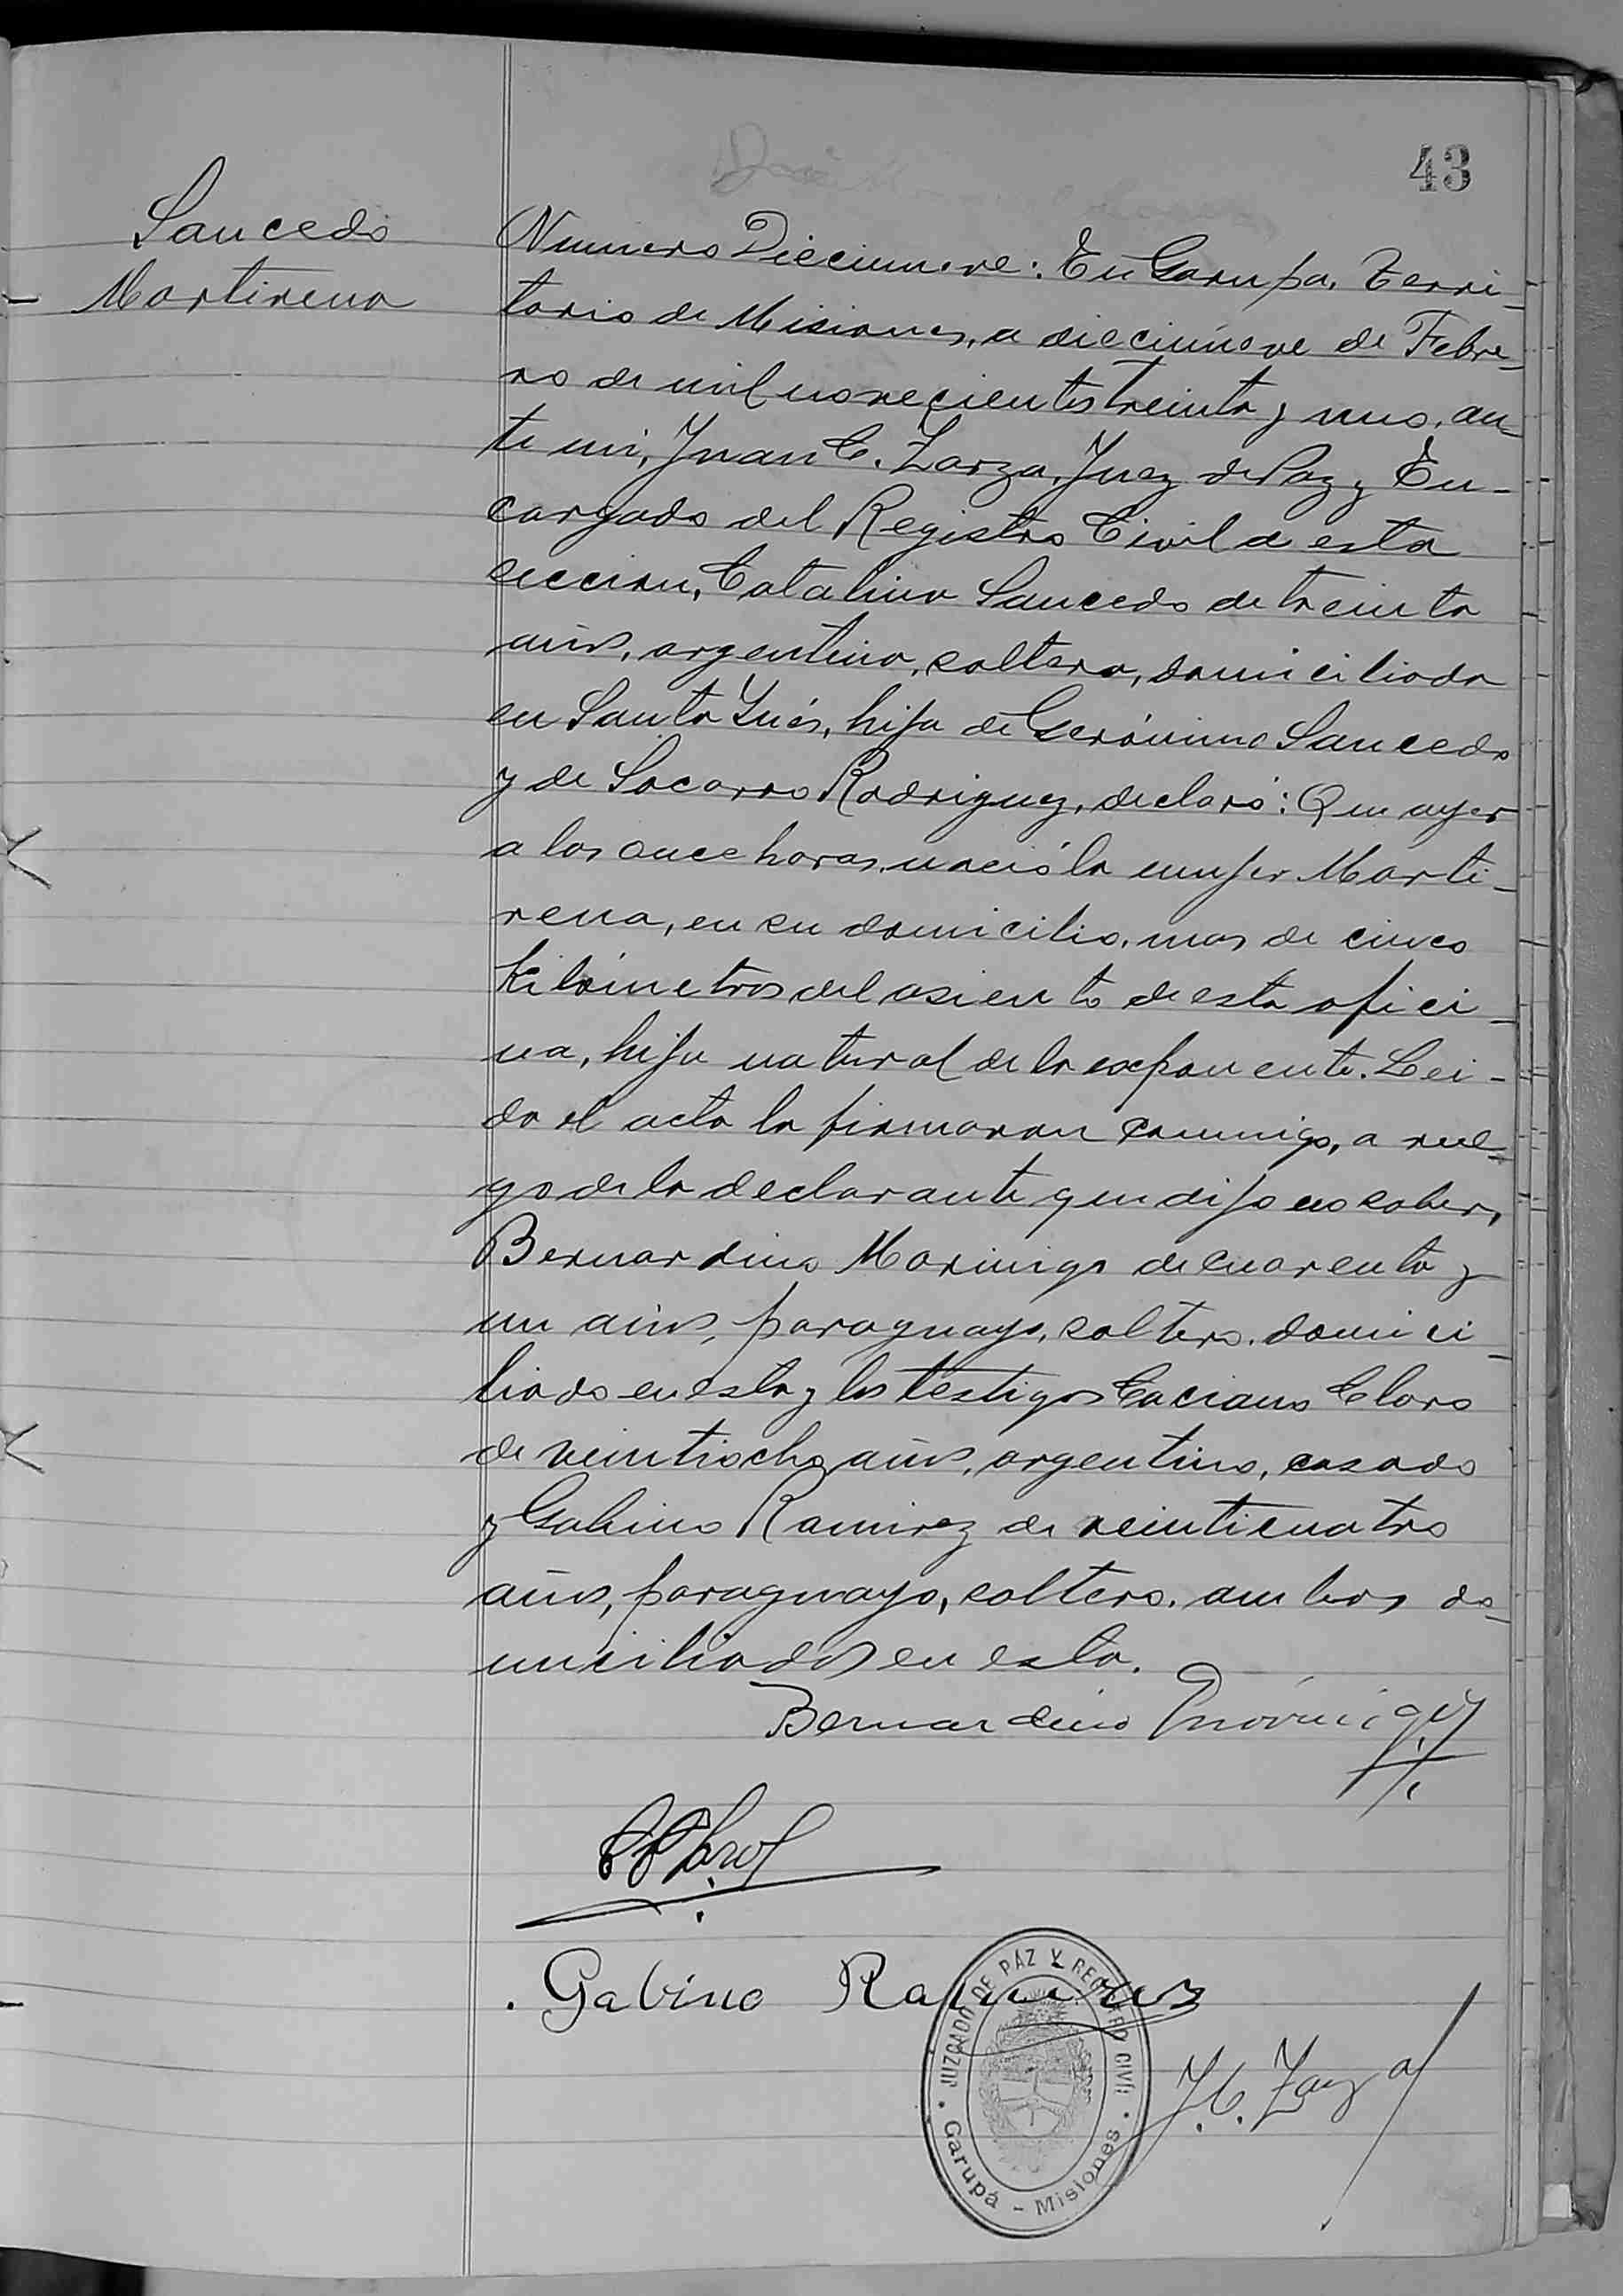 43
Saucedo
Martirena
Numero Diecinueve: En Garupa, Terri-
torio de Misiones, a diecinueve de Febre-
ro de mil novecientos treinta y uno, an-
te mi, Juan C. Zarza, Juez de Paz y En-
cargado del Registro Civil de esta
seccion, Catalina Saucedo de treinta
años, argentina, soltera, domiciliada
en Santa Inés, hija de Gerónimo Saucedo
y de Socorro Rodriguez, declaró: Que ayer
a las once horas, nació la mujer Marti-
rena, en su domicilio, mas de cinco
kilómetros del asiento de esta ofici-
na, hija natural de la exponente. Lei-
da el acta la firmaron conmigo, a rue-
go de la declarante que dijo no saber,
Bernardino Morinigo de cuarenta y
un años, paraguayo, soltero, domici-
liado en esta y los testigos Caciano Claro
de veintiocho años, argentino, casado
y Gabino Ramirez de veinticuatro
años, paraguayo, soltero, ambos do-
miciliados en esta.
Bernardino Morinigo
Gabino Ramirez
J. C. Zarza
JUZGADO DE PAZ Y REGISTRO CIVIL
Garupá - Misiones